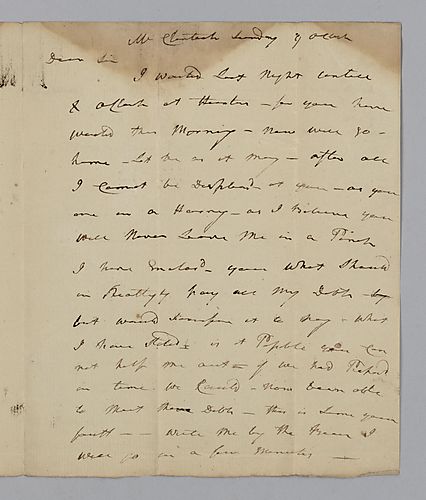 Mc Clintock Sunday 9 oClock
Dear Sir
I waited Last Night untill
8 oClock at Theaders – for you have
waited this Morning – Now will go –
home – Let be as it May – after all
I Cannot be Displeasd at you – as you
are in a Hurry – as I believe you
will Never Leave Me in a Pinch
I have Enclosd – you What Should
in Reallity pay all My Debts –
but would it a day – What
I have Stated – is it Posible you Can
not help Me out – if we had Pushed
in time We Could – Now been able
to Meet these Debts – this is Some your
fault – – write Me by the I
will go in a few Minutes —